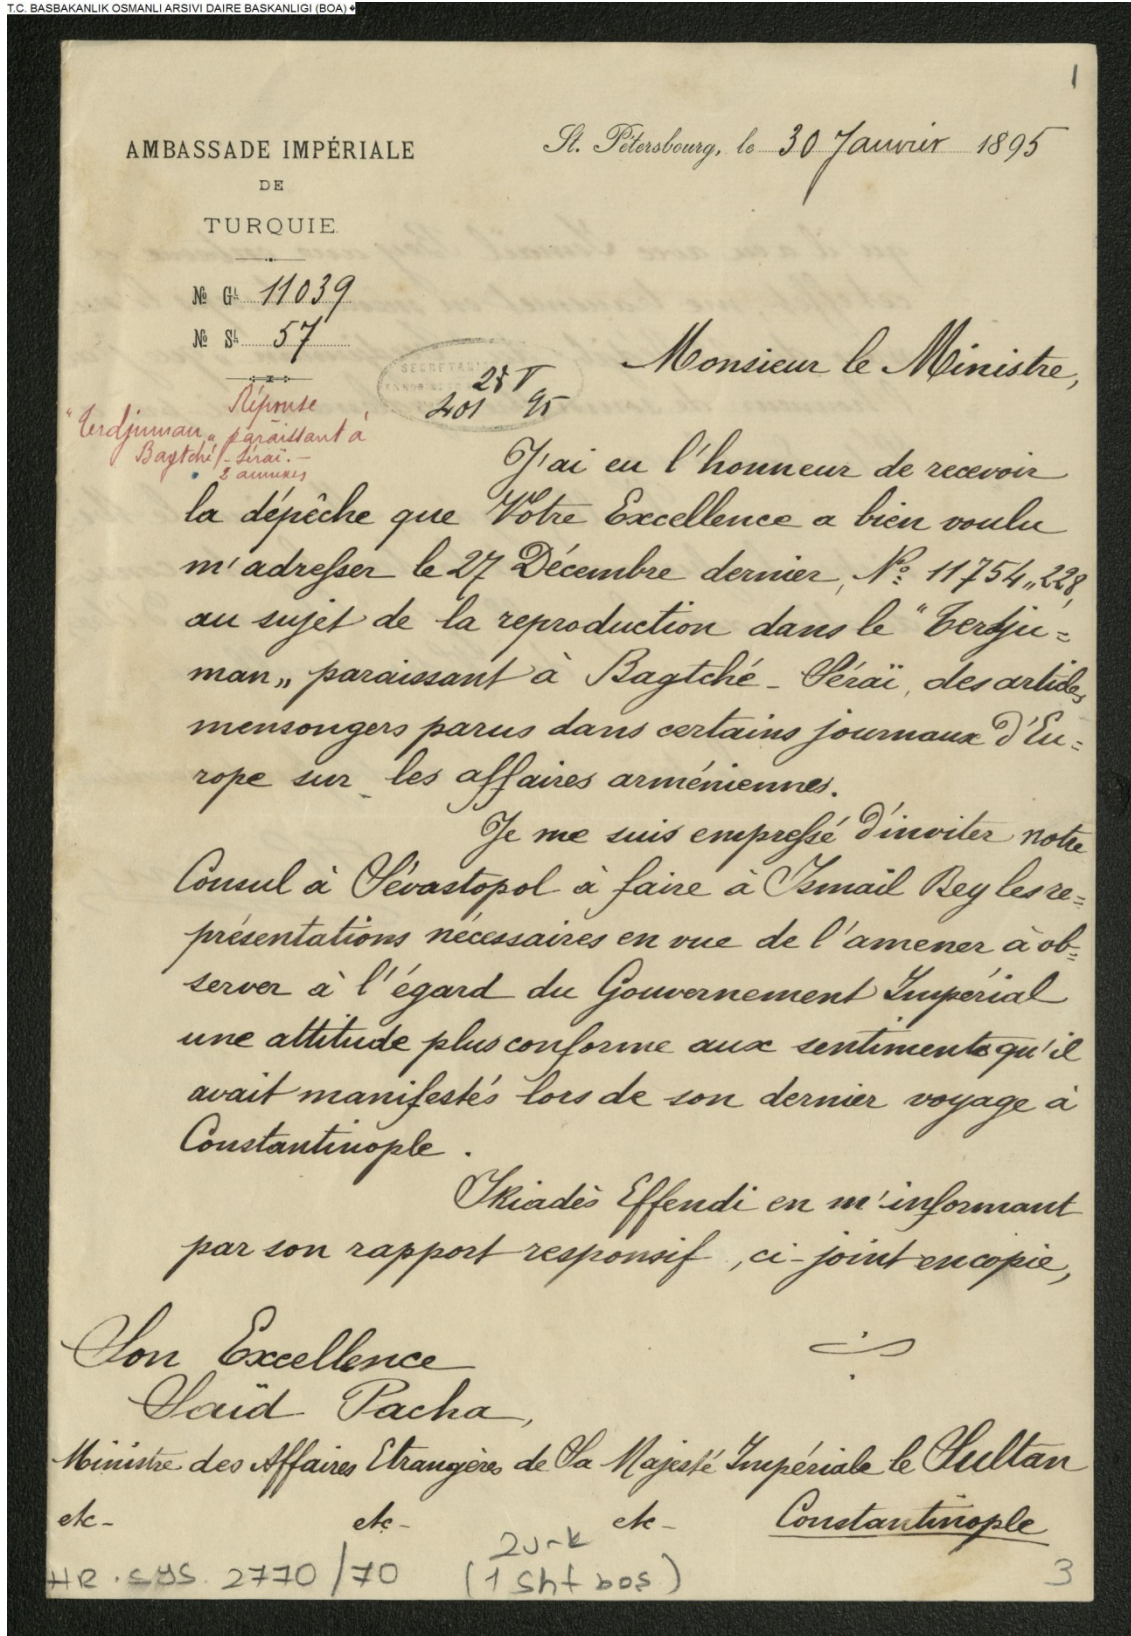 T.C. BASBAKANLIK OSMANLI ARSIVI DAIRE BASKANLIGI (BOA)
1
AMBASSADE IMPÉRIALE
DE
TURQUIE
St. Pétersbourg, le 30 Janvier 1895
No Gl 11039
No Sl 57
Réponse
"Terdjuman" paraissant à
Bagtché-Séraï.-
2 annexes
401 95
Monsieur le Ministre,
J'ai eu l'honneur de recevoir
la dépêche que Votre Excellence a bien voulu
m'adresser le 27 Décembre dernier, No: 11754„228,
au sujet de la reproduction dans le "Terdju=
man„ paraissant à Bagtché-Séraï, des articles
mensongers parus dans certains journaux d'Eu=
rope sur les affaires arméniennes.
Je me suis empressé d'inviter notre
Consul à Sévastopol à faire à Ismail Bey les re=
présentations nécessaires en vue de l'amener à ob=
server à l'égard du Gouvernement Impérial
une attitude plus conforme aux sentiments qu'il
avait manifestés lors de son dernier voyage à
Constantinople.
Skiadès Effendi en m'informant
par son rapport responsif, ci-joint en copie,
Son Excellence
Saïd Pacha,
Ministre des Affaires Etrangères de Sa Majesté Impériale le Sultan
etc- etc- etc- Constantinople
HR.SYS. 2770/70
2 vrk
(1 sht boş)
3